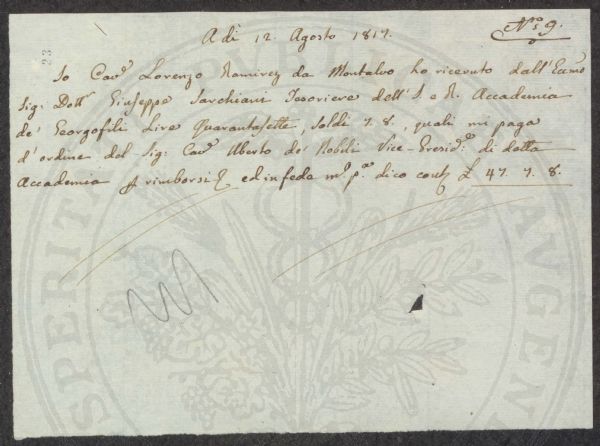 N.º 9.
23
A dì 12. Agosto 1817.
Io Cav.e Lorenzo Ramirez da Montalvo ho ricevuto dall' Ecc.mo
Sig: Dott.r Giuseppe Sarchiani Tesoriere dell' I. e R. Accademia
de' Georgofili Lire Quarantasette, soldi 7. 8, quali mi paga
d'ordine del Sig: Cav.e Uberto de' Nobili Vice-Presid.e di detta
Accademia rimborsi ed in fede m.o p.a dico cont £ 47. 7. 8.
PROSPERITATI PUBLICAE AUGENDAE